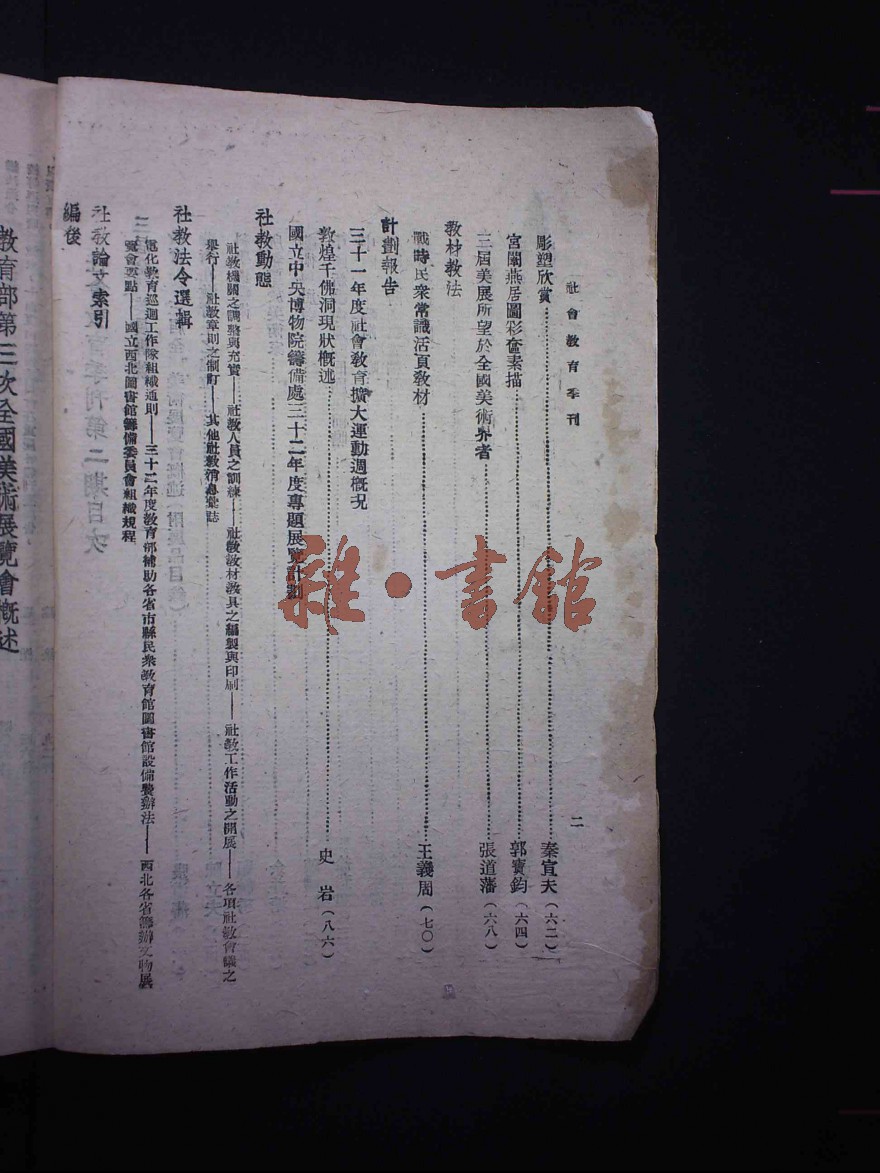 社會教育季刊
二
彫塑欣賞 秦宣夫(六二)
宮闈燕居圖彩奩素描 郭寶鈞(六四)
三屆美展所望於全國美術界者 張道藩(六八)
教材教法
戰時民衆常識活頁教材 王義周(七〇)
計劃報告
三十一年度社會教育擴大運動週概況
敦煌千佛洞現狀概述 史岩(八六)
國立中央博物院籌備處三十二年度專題展覽計劃
社教動態
社教機關之調整與充實——社教人員之訓練——社教教材教具之編製與印刷——社教工作活動之開展——各項社教會議之
舉行——社教章則之制訂——其他社教消息彙誌
社教法令選輯
電化教育巡迴工作隊組織通則——三十二年度教育部補助各省市縣民衆教育館圖書館設備費辦法——西北各省籌辦文物展
覽會要點——國立西北圖書館籌備委員會組織規程
社教論文索引
編後
教育部第三次全國美術展覽會概述
雜·書館